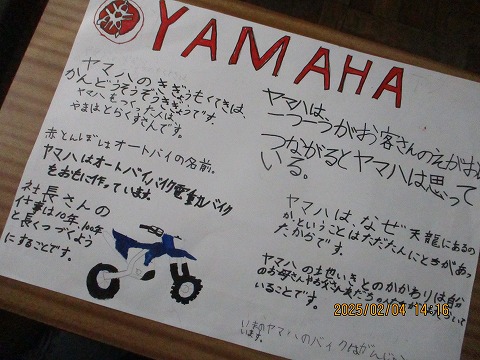 YAMAHA
ヤマハのきぎょうもくてきは、
かんどうそうぞうきぎょうです。
ヤマハをつくった人は
やまはとらくすさんです。
赤とんぼしはオートバイの名前。
ヤマハはオートバイバイク電動バイク
をおもに作っています。
社長さんの
仕事は10年、100年
と長くつづくよう
にすることです。
ヤマハは
一つ一つがお客さんのえがおに
つながるとヤマハは思って
いる。
ヤマハは、なぜ天龍にあるの
かということはただたんにとちがあっ
たからです。
ヤマハの土地いきとのかかわりは自分
のお母さんやお父さん
いることです。
いまのヤマハのバイクは
います。
2025/02/04 14:16